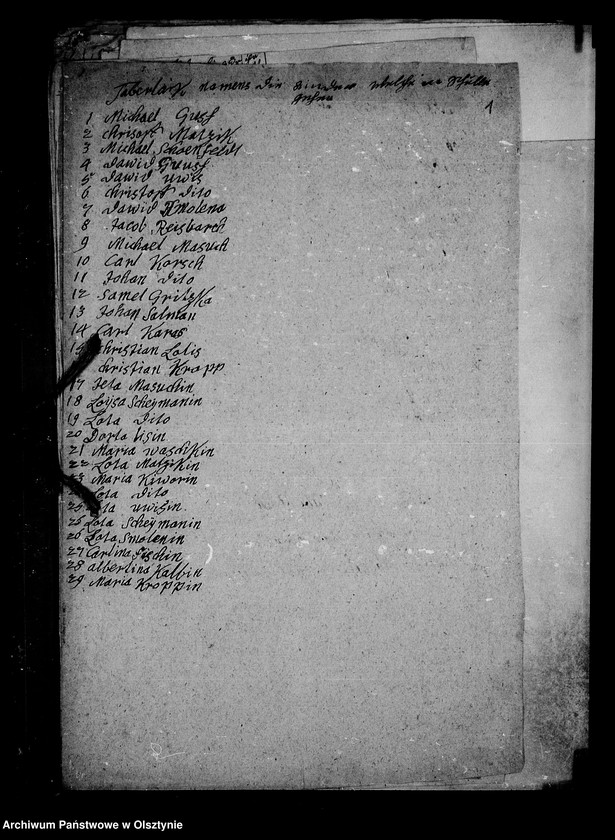 Taberlaik namens die Kinder welche in Schulle
gehen
1
1 Michael Guss
2 christoff Matzik
3 Michael Schoenfeldt
4 Dawid Guuss
5 Dawid uwis
6 christoff Dito
7 Dawid Smolena
8 Jacob Reisbarch
9 Michael Masuch
10 Carl Korsch
11 Johan Dito
12 Samel Gritzka
13 Johan Salman
14 Carl Karas
15 christian Lolis
christian Kropp
17 Jeta Masuchin
18 Loysa Scheymanin
19 Lota Dito
20 Dorta lisin
21 Maria waschkin
22 Lota Matzikin
23 Maria Kiworin
Lota Dito
25 uwisin
25 Lota Scheymanin
26 Lota Smolenin
27 Carlina Fischin
28 albertina Kalbin
29. Maria Kroppin
Archiwum Państwowe w Olsztynie